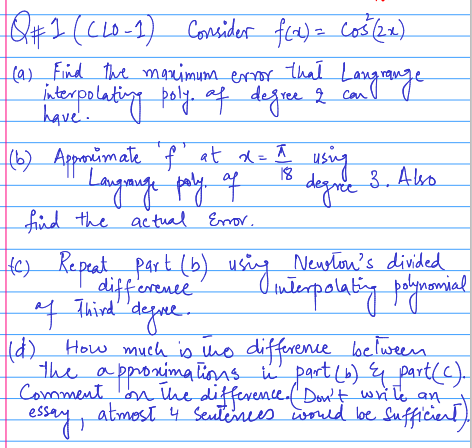 Q#1 (CLO-1) Consider f(x) = cos²(2x)
(a) Find the maximum error that Langrange
interpolating poly. of degree 2 can
have.
(b) Approximate 'f' at x = π/18 using
Langrange poly. of degree 3. Also
find the actual error.
(c) Repeat part (b) using Newton's divided
difference interpolating polynomial
of Third degree.
(d) How much is the difference between
the approximations in part (b) & part(c).
Comment on the difference. (Don't write an
essay, atmost 4 sentences would be sufficient)